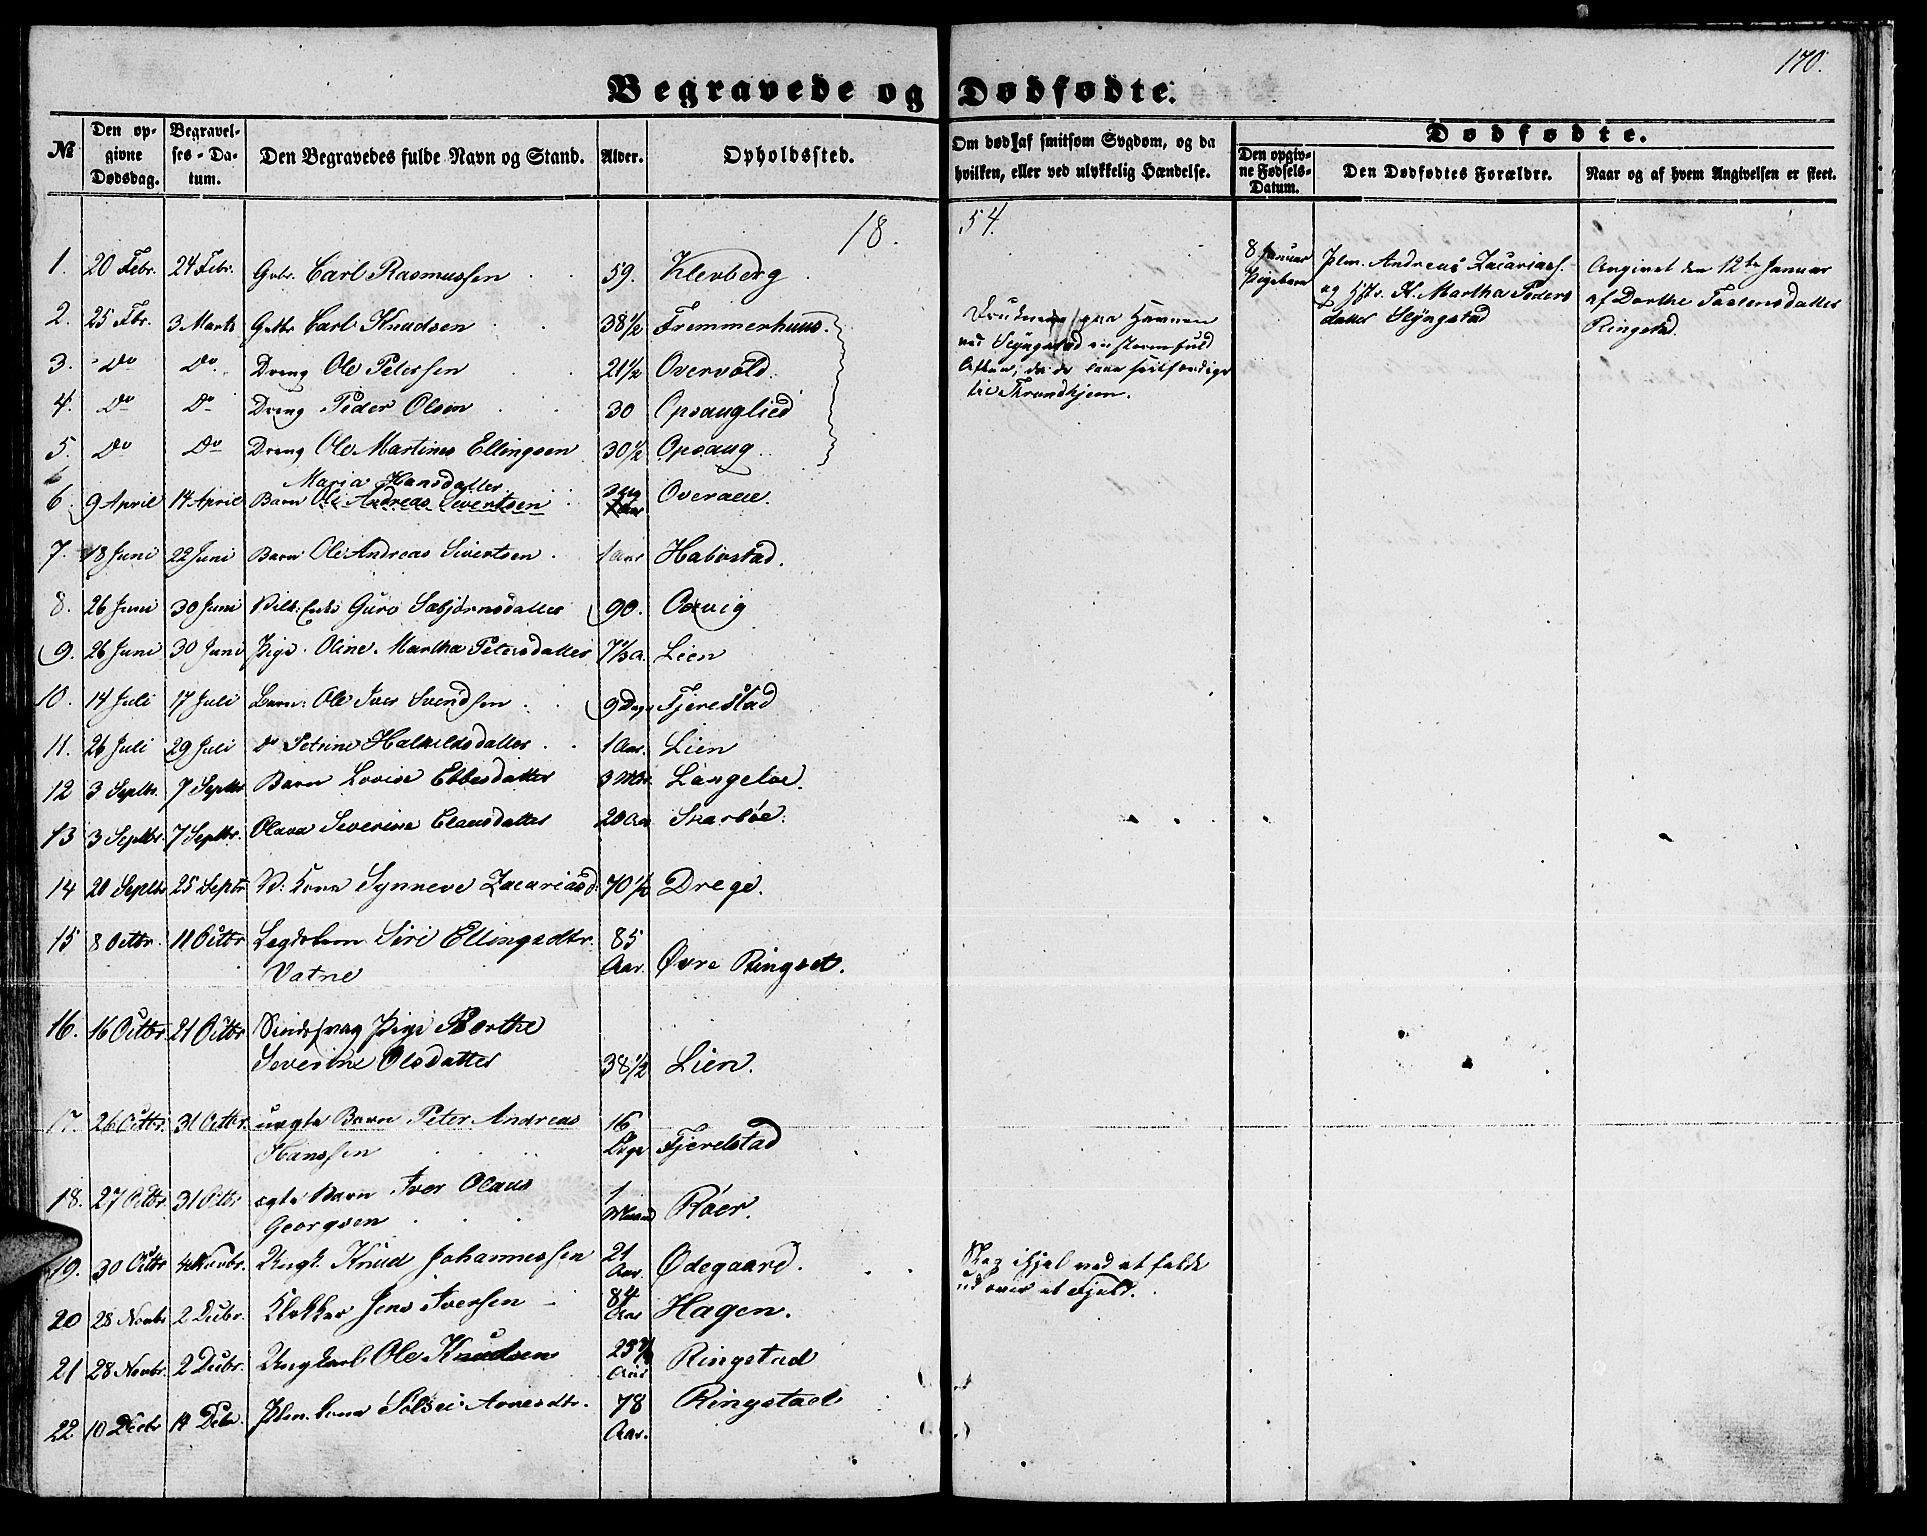 170.
Begravede og Dødfødte.
№
Den opgivne Dødsdag.
Begravelses-Datum.
Den Begravedes fulde Navn og Stand.
Alder.
Opholdssted.
Om død af smitsom Sygdom, og da hvilken, eller ved ulykkelig Hændelse.
Dødfødte.
Den opgivne Fødsels-Datum.
Den Dødfødtes Forældre.
Naar og af hvem Angivelsen er skeet.
18. 54.
1. 20 Febr. 24 Febr. Gbr. Carl Rasmussen 59. Klevberg
8 Januar Pigebarn
Plm. Andreas Zacariass.
og Hst. K. Martha Peders
datter Slyngstad
Angivet den 12te Januar
af Dorthe
Ringstad.
2. 25 Fbr. 3 Marts Carl Knudsen 38½ Fremmerhuus.
3. Do Do Dreng Ole Petersen 21½ Overvold.
4. Do Do Dreng Peder Olsen 30 Opsauglied
5. Do Do Dreng Ole Martinus Ellingsen 30½ Opsaug
paa Havnen
ved Slyngstad en stormfuld
Aften, da de laae seilfærdige
til Throndhjem.
Maria Hansdatter
6. 9 April 14 April Barn Ole Andreas Sivertsen Overaae.
7. 18 Juni 22 Juni Barn Ole Andreas Sivertsen 1 Aar Habostad.
8. 26 Juni 30 Juni Enke Guro Sæbjørnsdatter 90. Oxvig
9. 26 Juni 30 Juni Pige Oline Martha Petersdatter Lien
10. 14 Juli 17 Juli Barn: Ole Iver Svendsen 9 Dage Fjerestad
11. 26 Juli 29 Juli do Petrine Halkildsdatter 1 Aar. Lien
12 3 Septbr. 7 Septbr Barn Lovise Ebbesdatter 3 Mdr. Langeloe.
13 3 Septbr. 7 Septbr. Olava Severine Clausdatter 20 Aar Skarbøe.
14 20 Septbr 25 Septbr. Kone Synneve Zacariasd. 70½ Drege.
15 8 Octbr. 11 Octbr Legdslem Siri Ellingsdtr. 85
Vatne Aar. Øvre Ringset.
16. 16 Octbr. 21 Octbr Sindssvag Pige Berthe
Severine Olsdatter 38½ Lien.
17. 26 Octbr. 31 Octbr. uægte Barn Peter Andreas 16
Hanssen Dage Fjerelstad
18. 27 Octbr 31 Octbr ægte Barn Iver Olaus 1
Georgsen Maaned Røer.
19. 30 Octbr 4 Novbr. Ungk. Knud Johannessen 21 Aar. Ødegaard.
Slog ihjel ved at falde
ud over et Fjeld.
20 28 Novbr 2 Decbr. Klokker Jens Iversen 84 Aar Hagen.
21 28 Novbr. 2 Decbr. Ungkarl Ole Knudsen Aar Ringstad
22 10 Decbr 14 Decbr. Plm. Kone Solvei Arnesdtr. 78 Aar. Ringstad